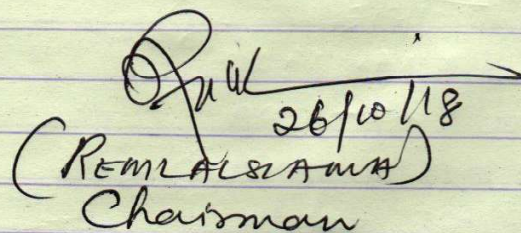 26/10/18
(REMLALSIAMA)
Chairman